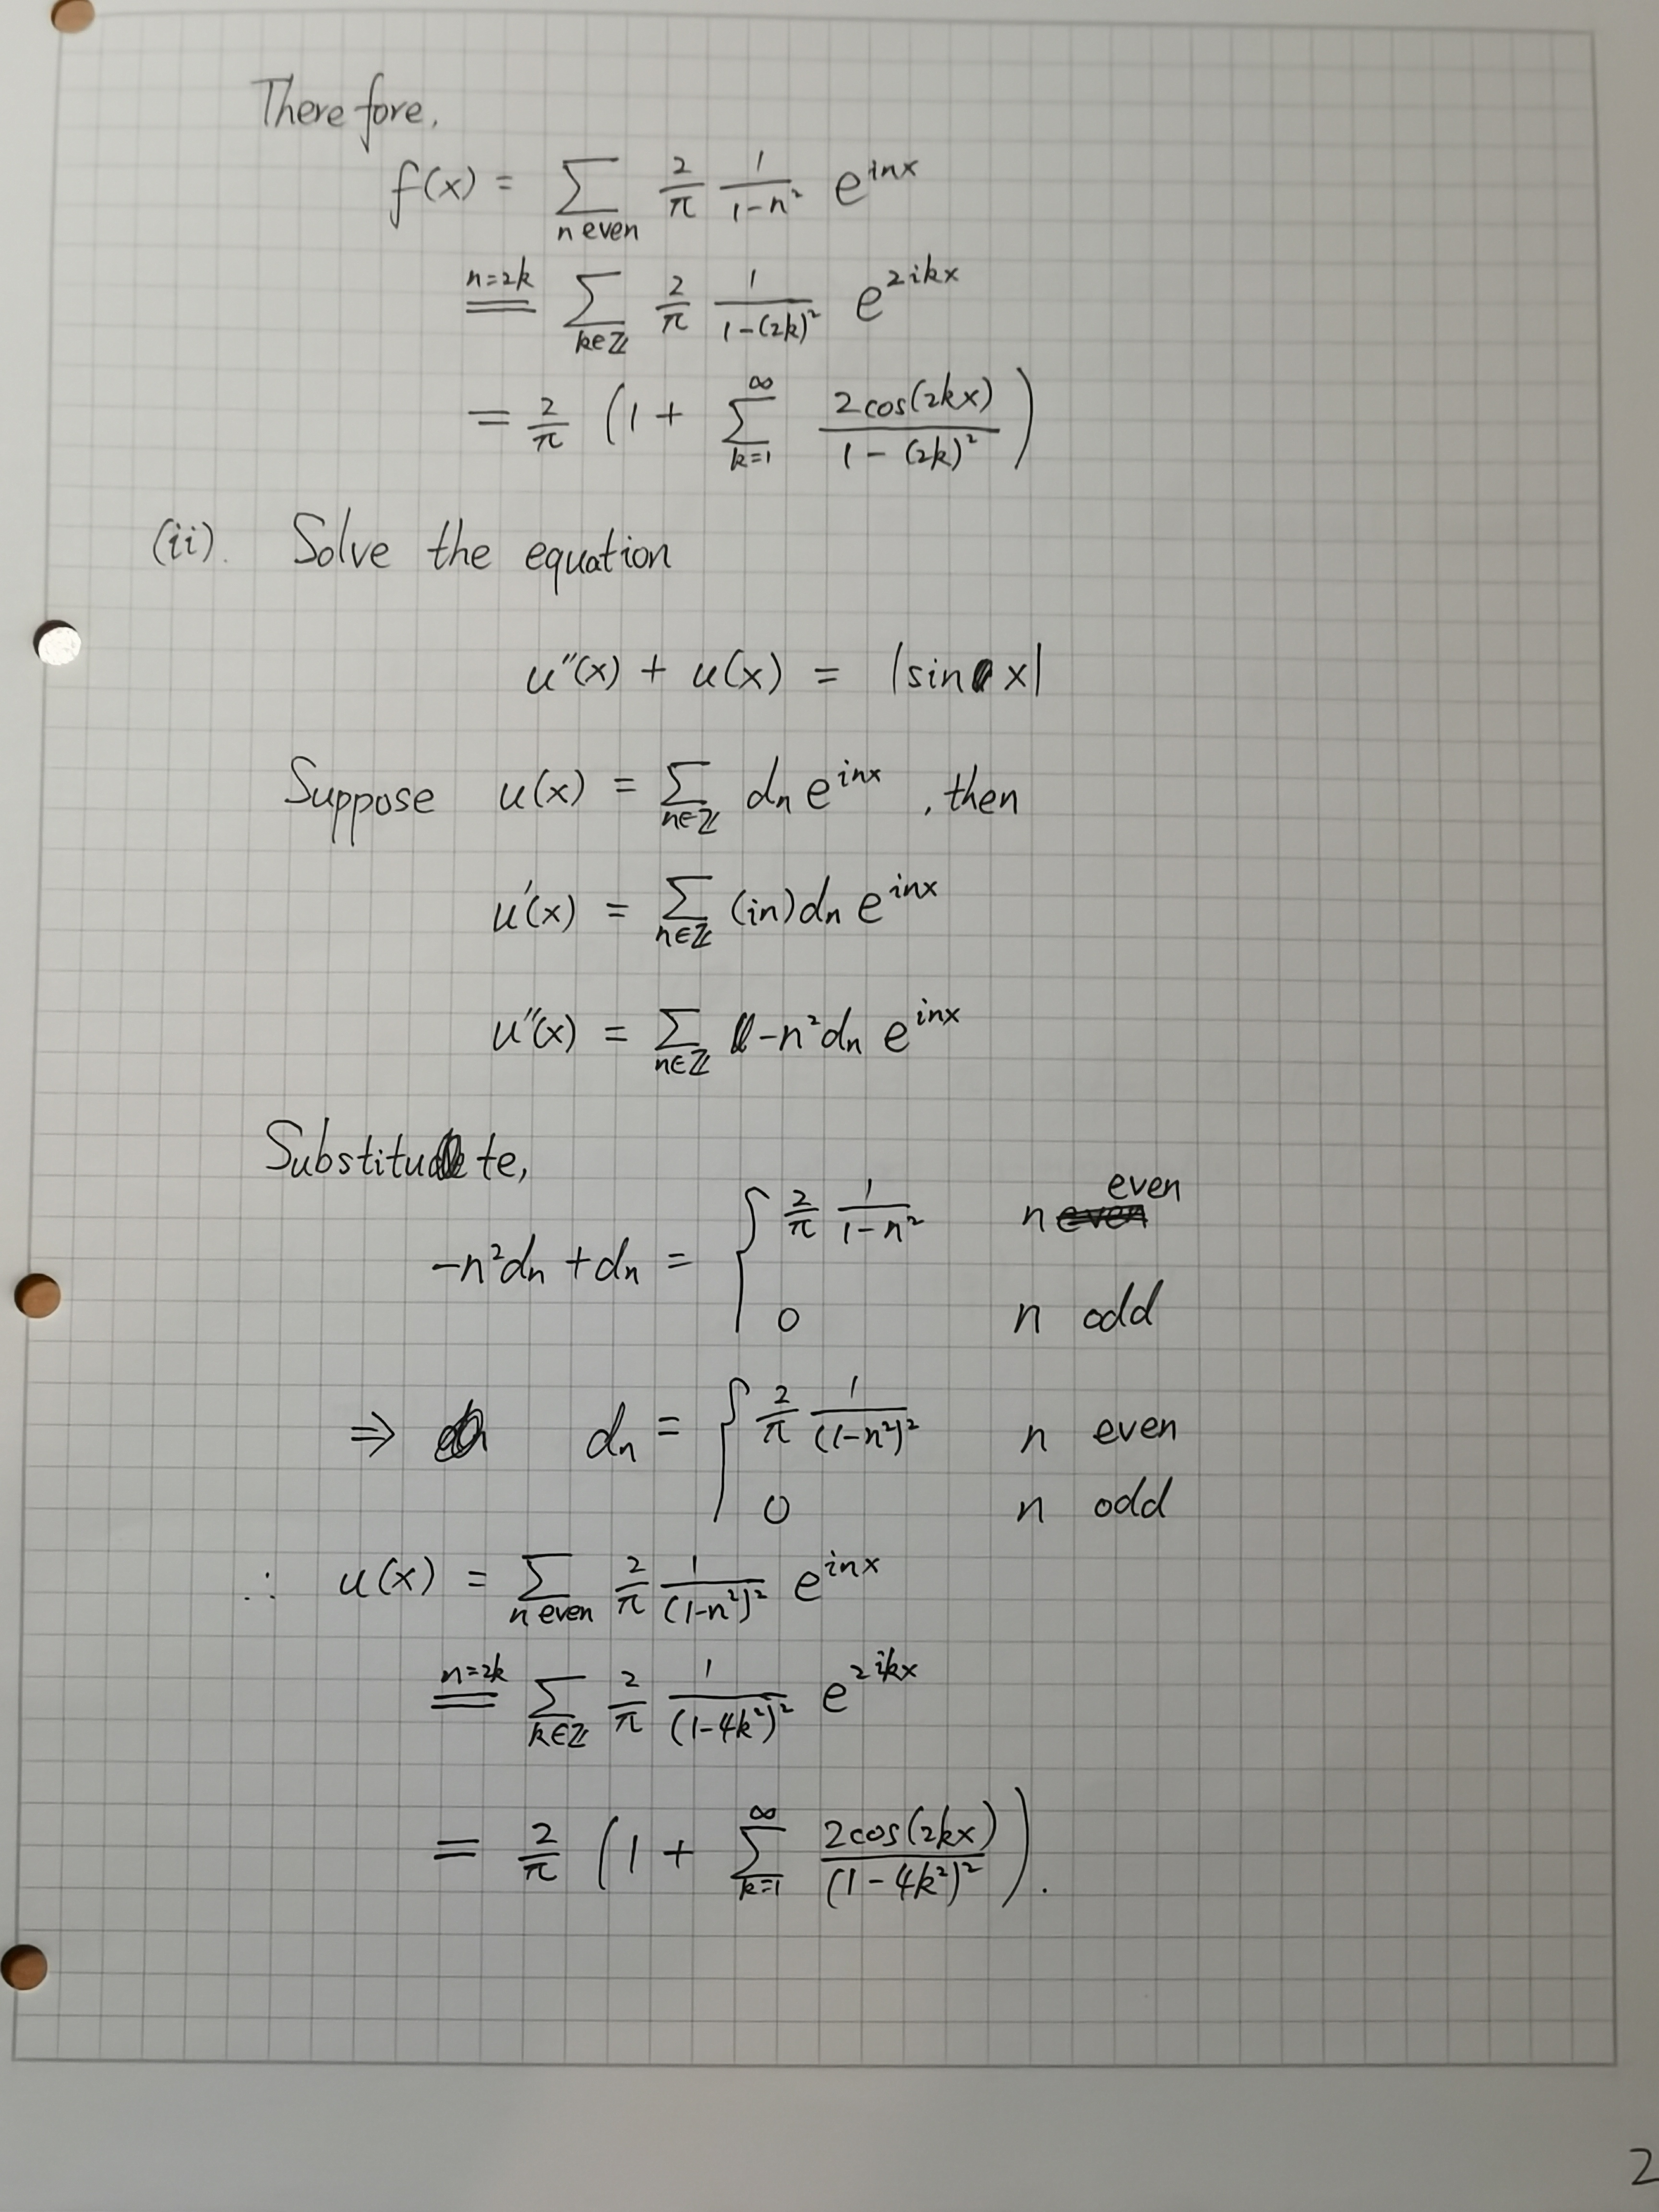 Therefore,
f(x) = ∑_{n even} 2/π 1/(1-n²) e^{inx}
n=2k ═ ∑_{k∈ℤ} 2/π 1/(1-(2k)²) e^{2ikx}
= 2/π (1 + ∑_{k=1}^{∞} 2cos(2kx)/(1-(2k)²))
(ii). Solve the equation
u''(x) + u(x) = |sin x|
Suppose u(x) = ∑_{n∈ℤ} dₙ e^{inx}, then
u'(x) = ∑_{n∈ℤ} (in)dₙ e^{inx}
u''(x) = ∑_{n∈ℤ} -n²dₙ e^{inx}
Substitute,
-n²dₙ + dₙ = { 2/π 1/(1-n²) n even
0 n odd
⇒ dₙ = { 2/π 1/(1-n²)² n even
0 n odd
∴ u(x) = ∑_{n even} 2/π 1/(1-n²)² e^{inx}
n=2k ═ ∑_{k∈ℤ} 2/π 1/(1-4k²)² e^{2ikx}
= 2/π (1 + ∑_{k=1}^{∞} 2cos(2kx)/(1-4k²)²).
2